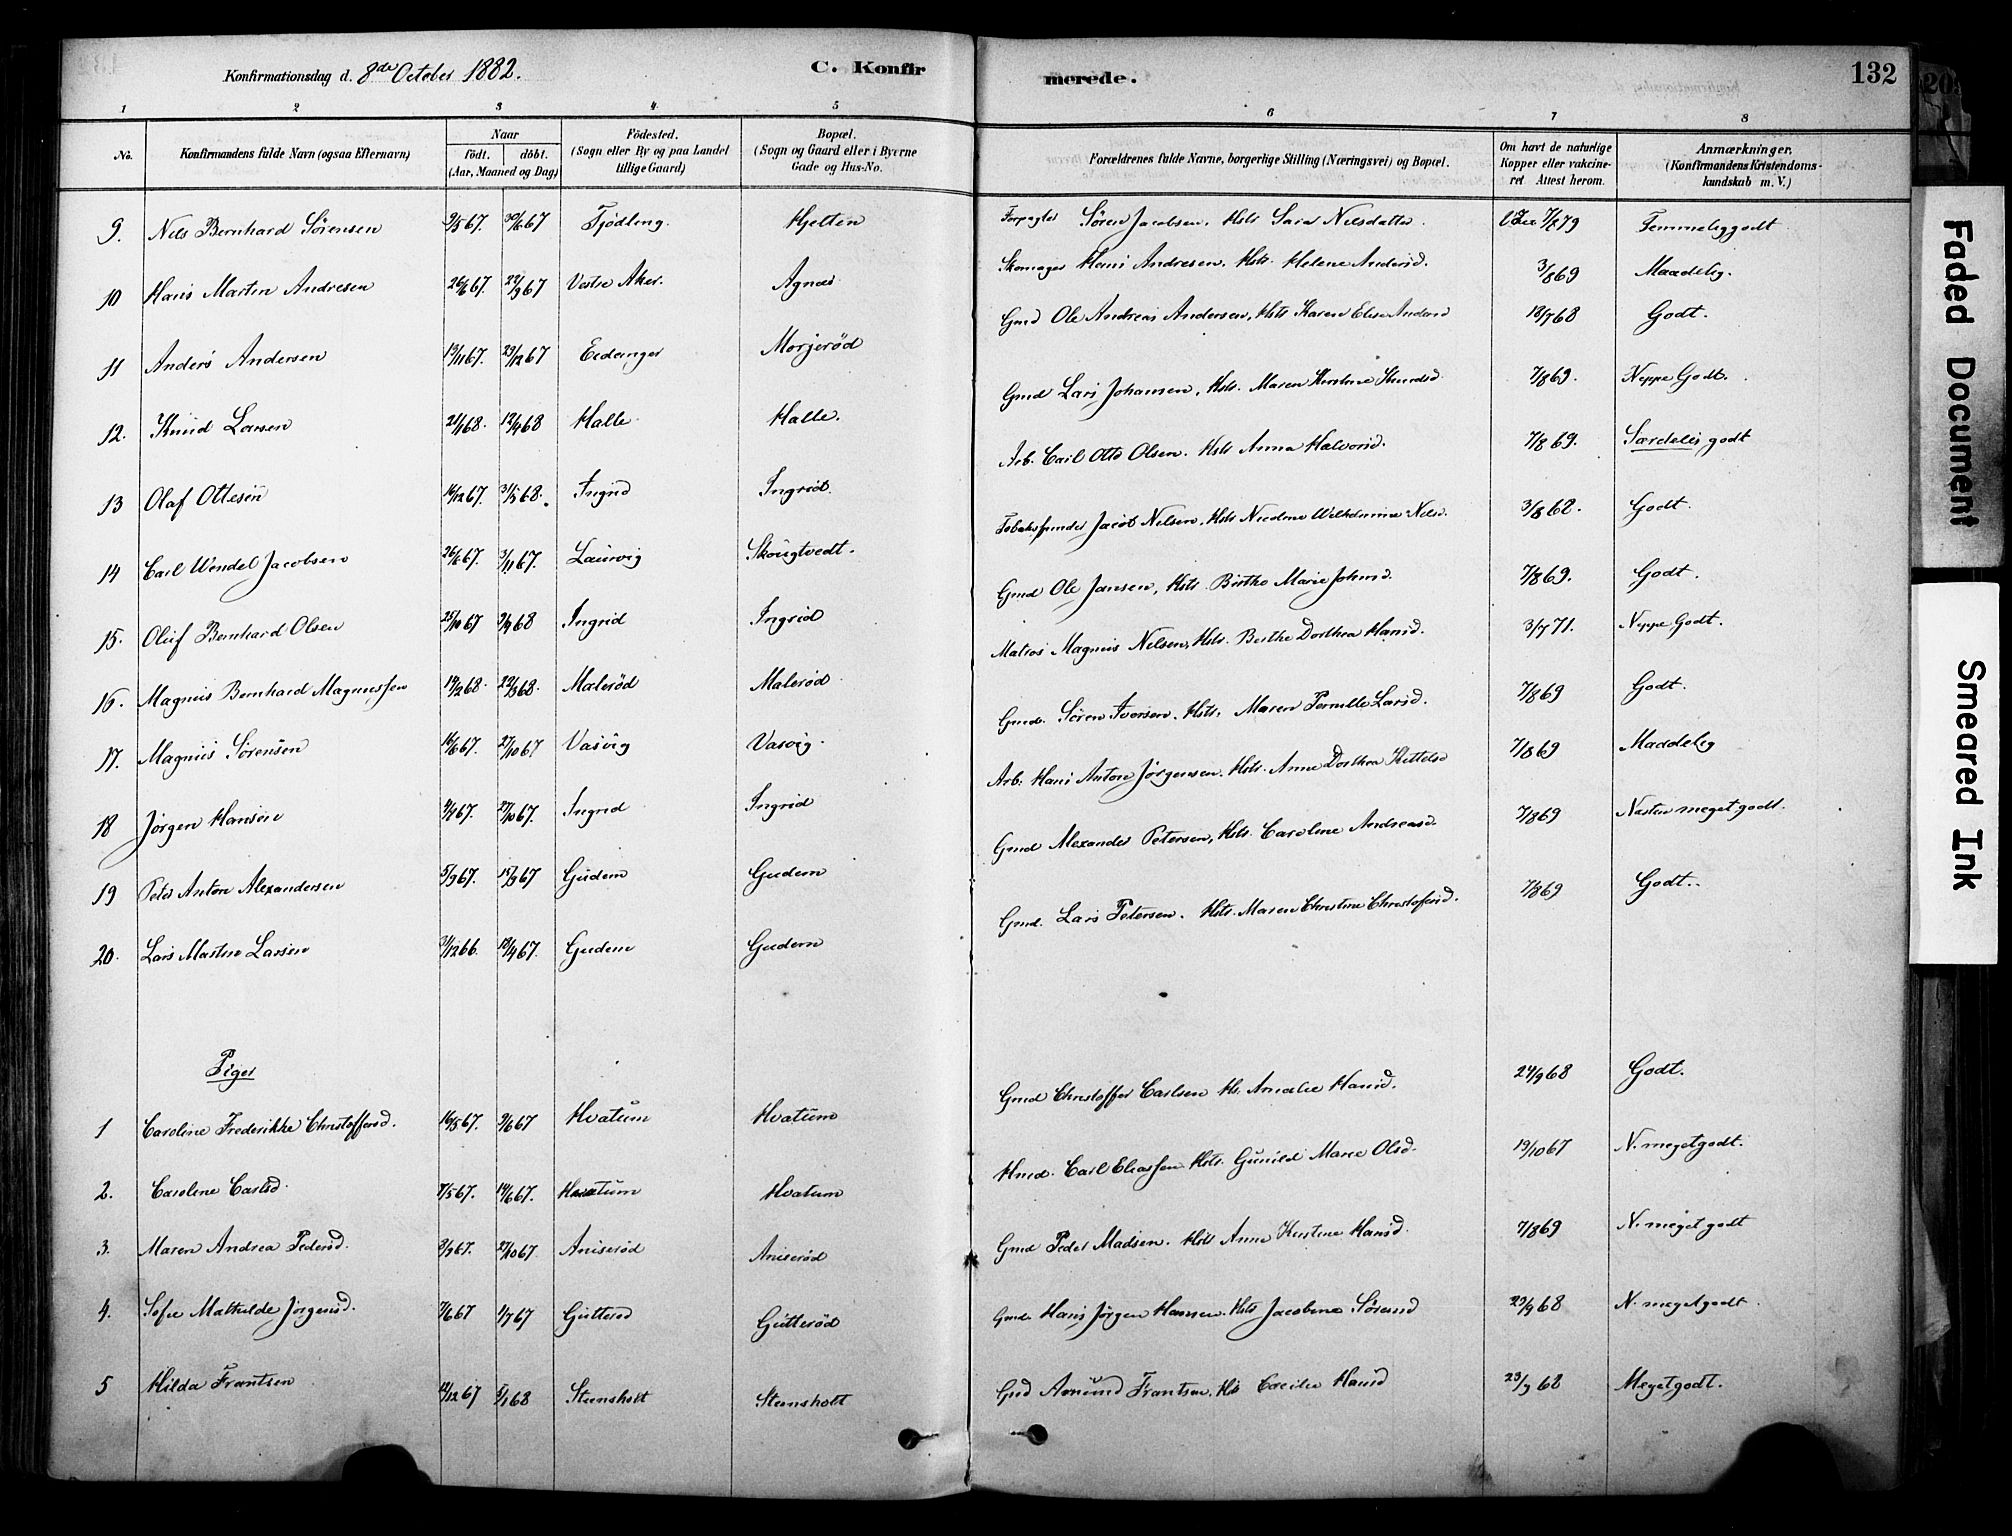 Konfirmationsdag d. 8de October 1882. C. Konfirmerede. 132
1 2 3 4 5 6 7 8
No. Konfirmandens fulde Navn (ogsaa Efternavn) Naar födt. döbt. (Aar, Maaned og Dag) Födested. (Sogn eller By og paa Landet tillige Gaard) Bopæl. (Sogn og Gaard eller i Byerne Gade og Hus-No. Forældrenes fulde Navne, borgerlige Stilling (Næringsvei) og Bopæl. Om havt de naturlige Kopper eller vakcineret Attest herom. Anmærkninger. (Konfirmandens Kristendomskundskab m. V.)
9. Nils Bernhard Sørensen 9/5 67. 30/6 67 Fjødling Hjelten Forpagter Søren Jacobsen. Hstr Sara Nilsdatter. 7/8 79 Temmelig godt
10 Hans Martin Andresen 26/6 67. 22/9 67 Vestre Aker. Agnæs Skomager Hans Andresen. Hstr. Helene Andersd. 3/8 69 Maadelig.
11 Anders Andersen 19/11 67. 29/12 67 Eidanger Morjerød Gmd Ole Andreas Andersen, Hstr Karen Elise Andersd 18/7 68 Godt.
12. Knud Larsen 21/1 68. 12/4 68 Halle Halle. Gmd Lars Johansen, Hstr. Maren Kirstine Knudsd 7/8 69. Neppe Godt.
13 Olaf Ottesen 16/12 67. 31/5 68. Ingrid Ingrid. Arb. Carl Otto Olsen. Hstr Anna Halvorsd. 7/8 69. Særdeles godt
14 Carl Wendel Jacobsen 26/6 67. 3/11 67. Laurvig Skougtvedt. Jacob Nilsen, Hstr Nicoline Wilhelmine Nilsd. 3/8 68. Godt.
15. Oluf Bernhard Olsen 25/10 67 9/4 68 Ingrid Ingrid Gmd Ole Jansen, Hstr. Birthe Marie Johnsd. 7/8 69. Godt.
16. Magnus Bernhard Magnussen 14/2 68. 22/3 68. Malerød Malerød Matros Magnus Nilsen, Hstr. Birthe Dorthea Hansd. 3/7 71. Neppe Godt.
17. Magnus Sørensen 16/8 67. 27/10 67 Vasvig Vasvig. Gmd. Søren Iversen. Hstr. Maren Pernille Larsd. 7/8 69 Godt.
18 Jørgen Hansen 4/4 67. 27/10 67. Ingrid Ingrid Arb. Hans Anton Jørgensen. Hstr. Anne Dorthea Kittelsd 7/8 69 Maadelig
19 Peter Anton Alexandersen 5/3 67. 15/9 67 Gudem Gudem Gmd Alexander Petersen, Hstr. Caroline Andreasd. 7/8 69 Næsten meget godt.
20. Lars Martin Larsen 31/12 66. 18/4 67. Gudem Gudem Gmd. Lars Petersen. Hstr. Maren Christine Christofersd. 7/8 69 Godt.
Piger
1 Caroline Frederikke Christoffersd. 16/5 67. 9/6 67 Hvatum Hvatum Gmd Christoffer Carlsen Hs. Amalie Hansd. 24/9 68 Godt.
2. Caroline Carlsd. 7/5 67. 14/6 67. Hvatum Hvatum Hmd. Carl Eliassen Hstr. Gunild Marie Olsd. 19/10 67 N. meget godt.
3. Maren Andrea Pedersd. 3/9 67. 27/10 67. Aniserød Aniserød Gmd Peder Madsen. Hstr Anne Kirstine Hansd. 7/8 69 N. meget godt
4. Sofie Mathilde Jørgensd. 7/6 67 1/7 67 Gutterød Gutterød Gmd. Hans Jørgen Hansen. Hstr Jacobine Sørensd 23/9 68 N. meget godt.
5 Hilda Frantsen 12/12 67 5/1 68 Steensholt Steensholt Gmd Amund Frantsen. Hs Cecilie Hansd 23/9 68 Meget godt.
Faded Document
Smeared Ink